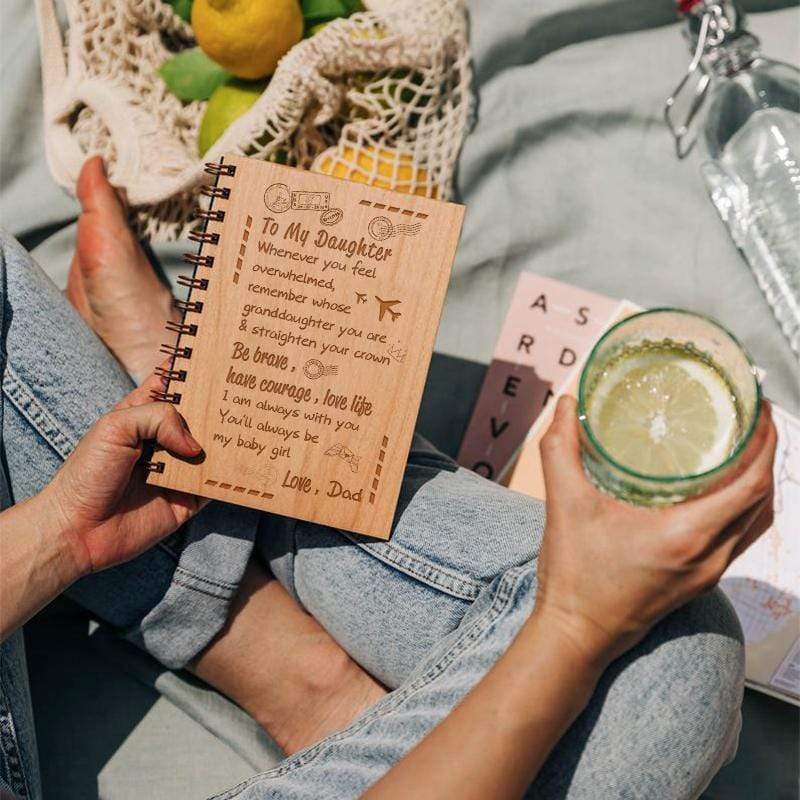 To My Daughter
Whenever you feel
overwhelmed,
remember whose
granddaughter you are
& straighten your crown
Be brave,
have courage, love life
I am always with you
You'll always be
my baby girl
Love, Dad
A S
R D
E
V
O